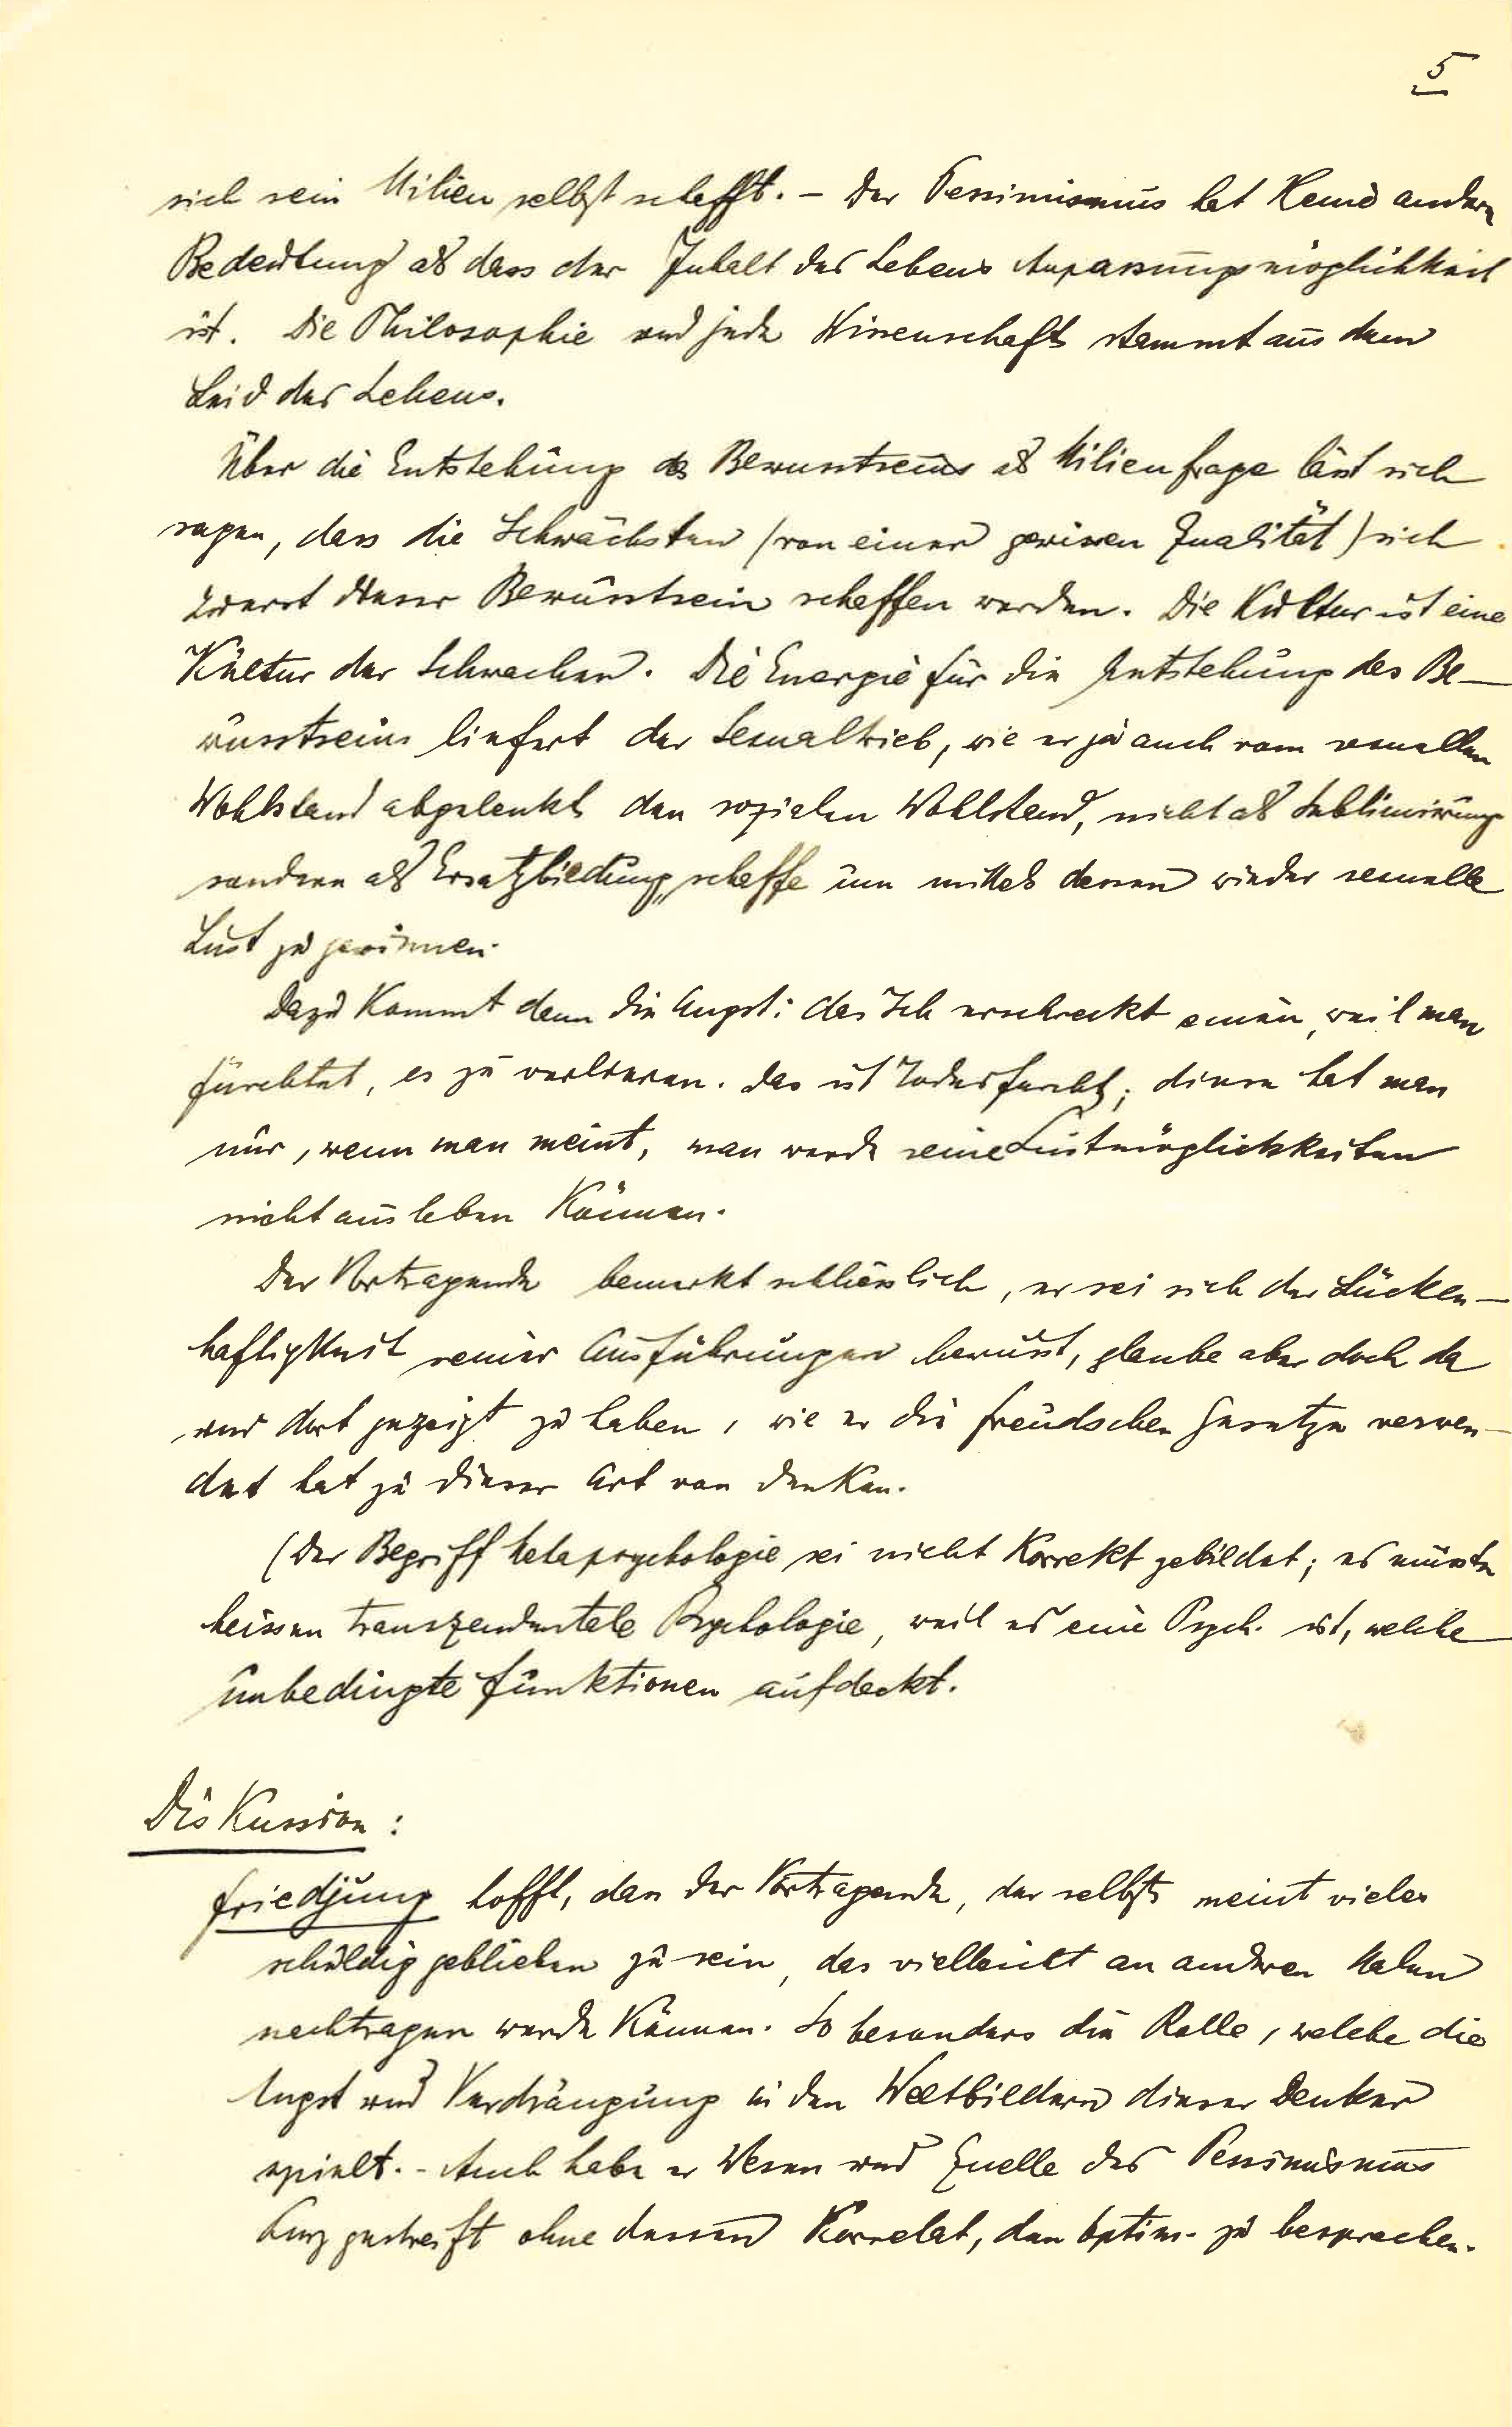 5
sich sein Milieu selbst schafft. – Der Pessimismus hat keine andere
Bedeutung als dass der Inhalt des Lebens Anpassungsmöglichkeit
ist. Die Philosophie und jede Wissenschaft stammt aus dem
Leid des Lebens.
Über die Entstehung des Bewusstseins als Milieufrage lässt sich
sagen, dass die Schwächsten (von einer gewissen Qualität) sich
zuerst dieser Bewusstsein schaffen werden. Die Kultur ist eine
Kultur der Schwachen. Die Energie für die Entstehung des Be–
wusstseins liefert der Sexualtrieb, wie er ja auch vom sexuellen
Wohlstand abgelenkt den sozialen Wohlstand, nicht als Sublimirung
sondern als Ersatzbildung, schaffe um mittels dessen wieder sexuelle
Lust zu gewinnen.
Dazu kommt dann die Angst: das Ich erschreckt einen, weil man
fürchtet, es zu verlieren. Das ist Todesfurcht; diese hat man
nur, wenn man meint, man werde seine Lustmöglichkeiten
nicht ausleben können.
Der Vortragende bemerkt schliesslich, er sei sich der Lücken–
haftigkeit seiner Ausführungen bewusst, glaube aber doch da
und dort gezeigt zu haben, wie er die freudschen Gesetze verwen–
det hat zu dieser Art von Denken.
(Der Begriff Metapsychologie sei nicht korrekt gebildet; es müsste
heissen transzendentale Psychologie, weil es eine Psych. ist, welche
unbedingte Funktionen aufdeckt.
Diskussion:
Friedjung hofft, dass der Vortragende, der selbst meint vieles
schuldig geblieben zu sein, das vielleicht an anderen Malen
nachtragen werde können. So besonders die Rolle, welche die
Angst und Verdrängung in den Weltbildern dieser Denker
spielt. – Auch habe er Wesen und Quelle des Pessimismus
kurz gestreift ohne dessen Korrelat, den Optim. zu besprechen.